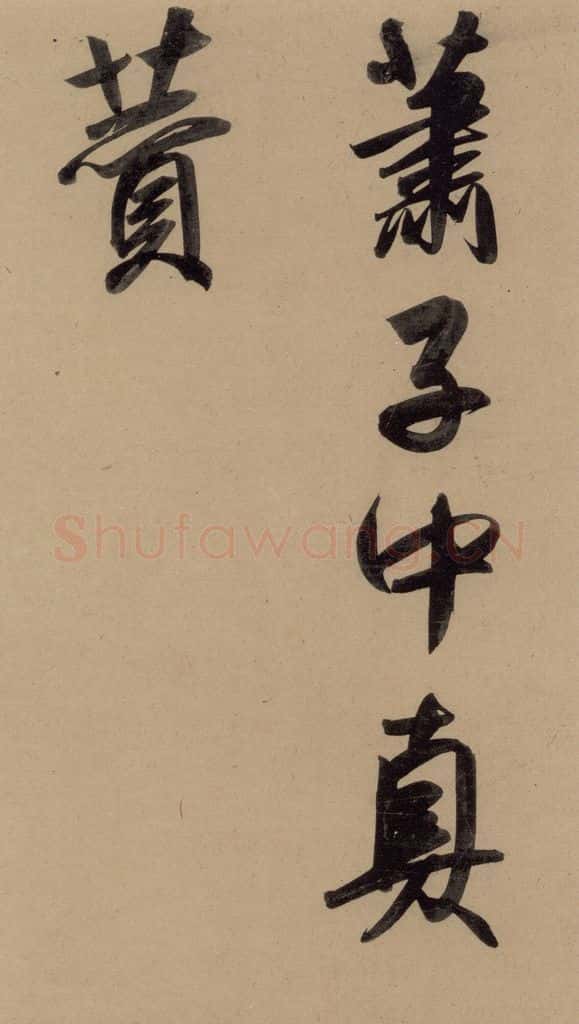 蕭子中真
贊
Shufawang.CN